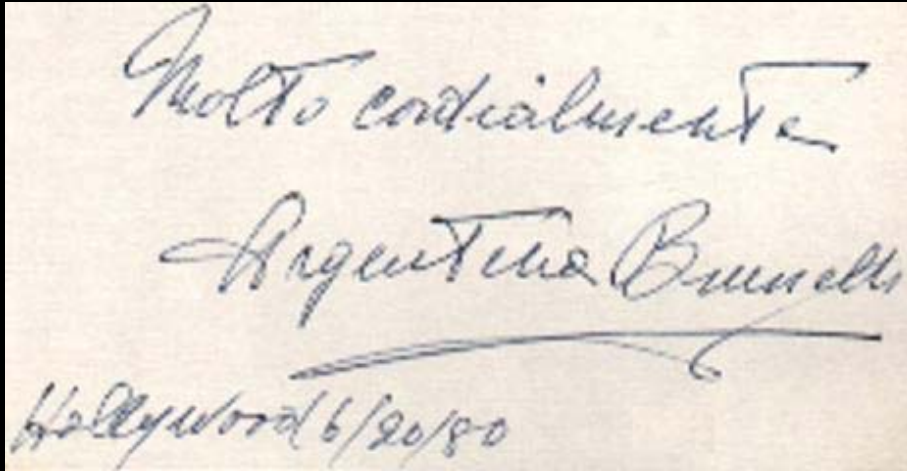 Molto cordialmente
Argentina Brunetti
Hollywood 6/20/80